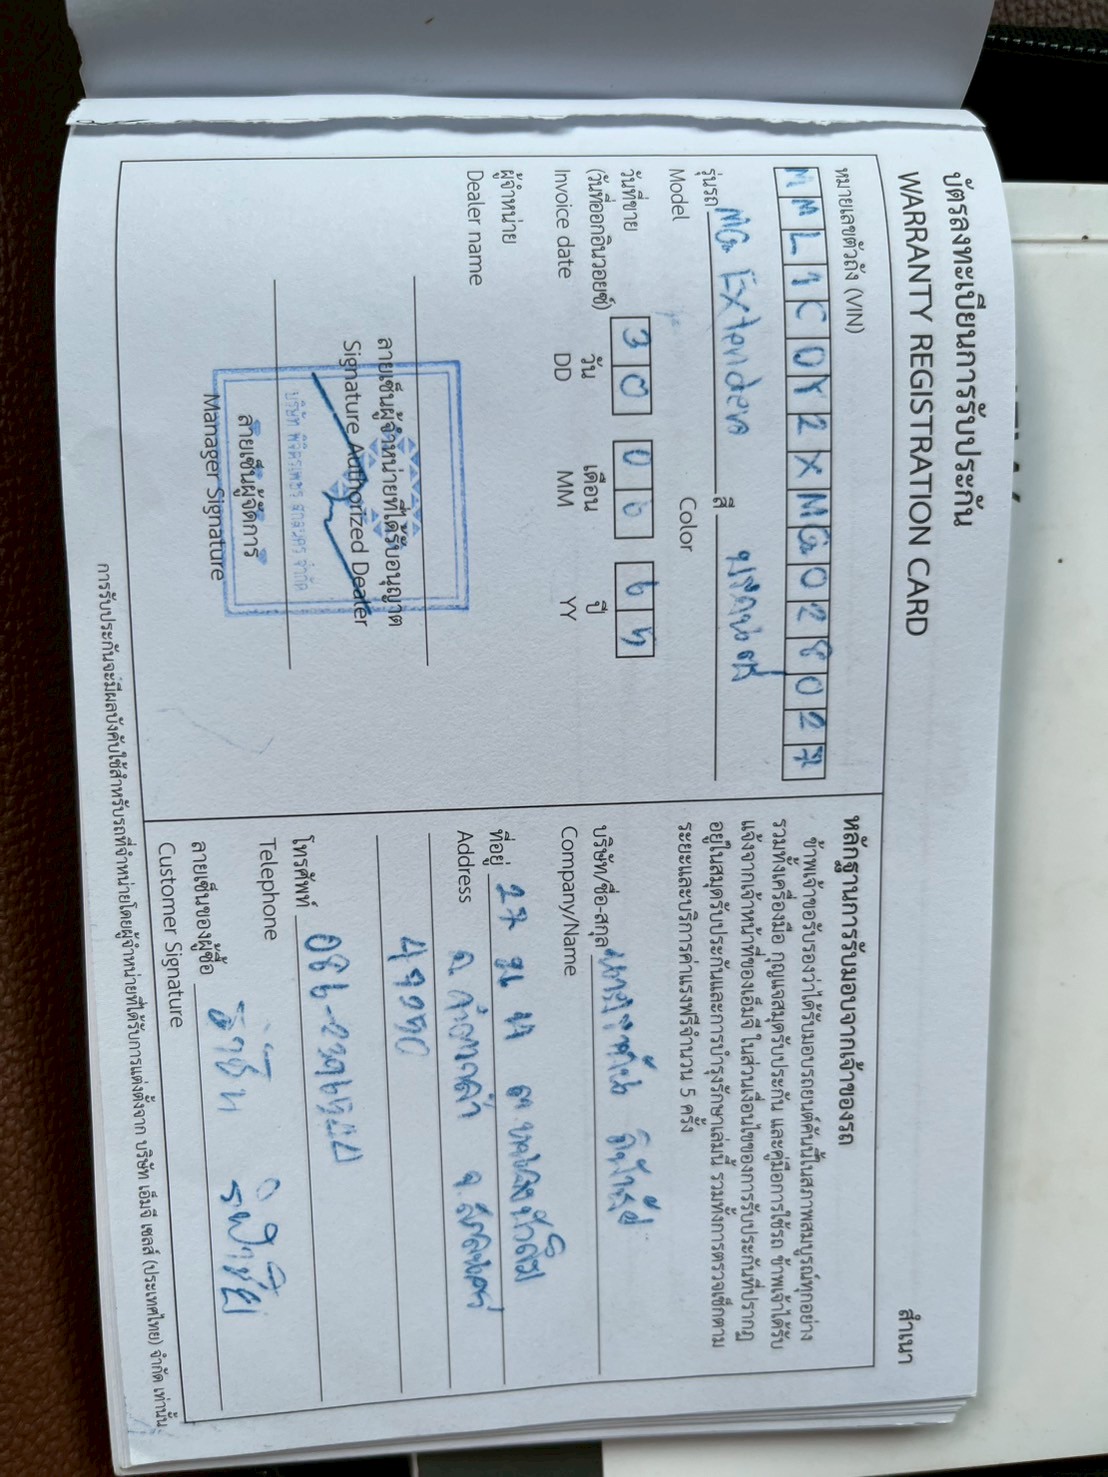 บัตรลงทะเบียนการรับประกัน
WARRANTY REGISTRATION CARD
สำเนา
หมายเลขตัวถัง (VIN)
MML1C0Y2XMG028027
รุ่นรถ MG Extender สี
Model Color
วันที่ขาย
(วันที่ออกอินวอยซ์) 30 06 65
Invoice date
วัน เดือน ปี
DD MM YY
ผู้จำหน่าย
Dealer name
ลายเซ็นผู้จำหน่ายที่ได้รับอนุญาต
Signature Authorized Dealer
ลายเซ็นผู้จัดการ
Manager Signature
หลักฐานการรับมอบจากเจ้าของรถ
ข้าพเจ้าขอรับรองว่าได้รับมอบรถยนต์คันนี้ในสภาพสมบูรณ์ทุกอย่าง
รวมทั้งเครื่องมือ กุญแจสมุดรับประกัน และคู่มือการใช้รถ ข้าพเจ้าได้รับ
แจ้งจากเจ้าหน้าที่ของเอ็มจี ในส่วนเงื่อนไขของการรับประกันที่ปรากฏ
อยู่ในสมุดรับประกันและการบำรุงรักษาเล่มนี้ รวมทั้งการตรวจเช็กตาม
ระยะและบริการค่าแรงฟรีจำนวน 5 ครั้ง
บริษัท/ชื่อ-สกุล
Company/Name
ที่อยู่ 27 ม
Address จ.สกลนคร
โทรศัพท์
Telephone
ลายเซ็นของผู้ซื้อ
Customer Signature
การรับประกันจะมีผลบังคับใช้สำหรับรถที่จำหน่ายโดยผู้จำหน่ายที่ได้รับการแต่งตั้งจาก บริษัท เอ็มจี เซลส์ (ประเทศไทย) จำกัด เท่านั้น